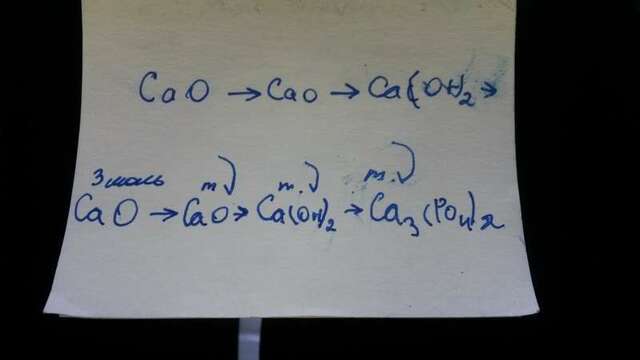 CaO → CaO → Ca(OH)2 →
3 моль m m. m.
CaO → CaO → Ca(OH)2 → Ca3(PO4)2